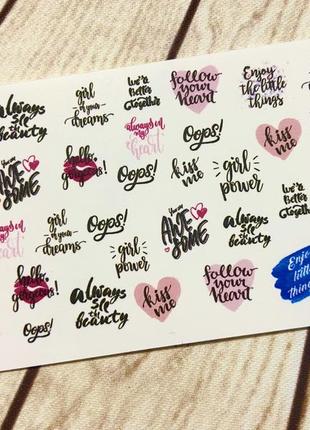 always
see the
beauty
girl
of your
dreams
we're
Better
Together
follow
your
Heart
Enjoy
the little
things
always in
my
heart
Oops!
kiss
me
hello,
gorgeous!
you are
AWE
SOME
Oops!
kiss
me
girl
power
we're
Better
Together
always in
my
heart
girl
of your
dreams
Oops!
girl
power
you are
AWE
SOME
always
see the
beauty
hello,
gorgeous!
Oops!
always
see the
beauty
kiss
me
follow
your
Heart
Enjoy